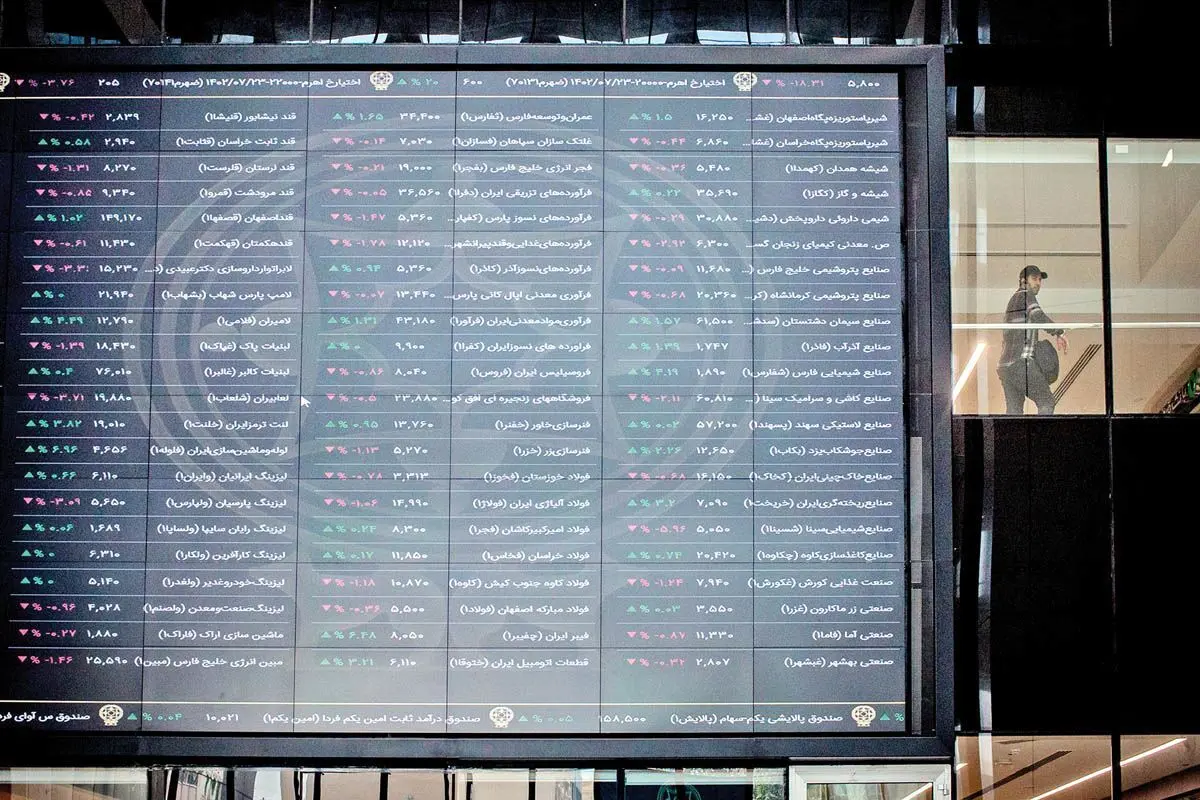 ۵,۸۰۰ ▼ % -۱۸.۳۱ اختیارخ اهرم-۲۰۰۰۰-۱۴۰۲/۰۷/۲۳ (ضهرم۷۰۱۳۱) ۶۰۰ ▲ % ۲۰ اختیارخ اهرم-۲۲۰۰۰-۱۴۰۲/۰۷/۲۳ (ضهرم۷۰۱۴۱) ۲۰۵ ▼ % -۳.۷۶
شیرپاستوریزه‌پگاه‌اصفهان (غش... ۱۶,۲۵۰ ▲ % ۱.۵ عمران‌وتوسعه‌فارس (ثفارس۱) ۳۴,۴۰۰ ▲ % ۱.۶۵ قند نیشابور (قنیشا۱) ۲,۸۳۹ ▼ % -۰.۴۲
شیرپاستوریزه‌پگاه‌خراسان (غشا... ۶,۸۶۰ ▼ % -۰.۴۴ غلتک سازان سپاهان (فسازان۱) ۷,۰۳۰ ▼ % -۰.۱۴ قند ثابت خراسان (قثابت۱) ۲,۹۴۰ ▲ % ۰.۵۸
شیشه همدان (کهمدا۱) ۵,۴۸۰ ▼ % -۰.۳۶ فجر انرژی خلیج فارس (بفجر۱) ۱۹,۰۰۰ ▼ % -۰.۲۱ قند لرستان (قلرست۱) ۸,۲۷۰ ▼ % -۱.۳۱
شیشه و گاز (کگاز۱) ۳۵,۶۹۰ ▲ % ۰.۲۲ فرآورده‌های تزریقی ایران (دفرا۱) ۳۶,۵۶۰ ▼ % -۰.۰۵ قند مرودشت (قمرو۱) ۹,۳۴۰ ▼ % -۰.۸۵
شیمی داروئی داروپخش (دشی... ۳۰,۸۸۰ ▼ % -۰.۲۹ فرآورده‌های نسوز پارس (کفپار... ۵,۳۶۰ ▼ % -۱.۴۷ قنداصفهان (قصفها۱) ۱۴۹,۱۷۰ ▲ % ۱.۰۲
ص. معدنی کیمیای زنجان گس... ۶,۳۰۰ ▼ % -۲.۹۲ فرآورده‌های‌غذایی‌وقندپیرانشهر... ۱۲,۱۲۰ ▼ % -۱.۷۸ قندهکمتان (قهکمت۱) ۱۱,۴۳۰ ▼ % -۰.۶۱
صنایع پتروشیمی خلیج فارس (... ۱۱,۶۸۰ ▼ % -۰.۰۹ فرآورده‌های‌نسوزآذر (کاذر۱) ۵,۳۶۰ ▲ % ۰.۹۴ لابراتوارداروسازی دکترعبیدی (د... ۱۵,۲۳۰ ▼ % -۳.۳
صنایع پتروشیمی کرمانشاه (کر... ۲۰,۳۶۰ ▼ % -۰.۶۸ فرآوری معدنی اپال کانی پارس... ۱۳,۴۴۰ ▼ % -۰.۰۷ لامپ پارس شهاب (بشهاب۱) ۲۱,۹۴۰ ▲ % ۰
صنایع سیمان دشتستان (سدش... ۶۱,۵۰۰ ▲ % ۱.۵۷ فرآوری‌موادمعدنی‌ایران (فرآور۱) ۴۳,۱۸۰ ▲ % ۱.۳۱ لامیران (فلامی۱) ۱۲,۷۹۰ ▲ % ۴.۴۹
صنایع آذرآب (فاذر۱) ۱,۷۴۷ ▲ % ۱.۳۹ فراورده های نسوزایران (کفرا۱) ۹,۹۰۰ ▲ % ۰ لبنیات پاک (غپاک۱) ۱۸,۴۳۰ ▼ % -۱.۳۹
صنایع شیمیایی فارس (شفارس۱) ۱,۸۹۰ ▲ % ۴.۱۹ فروسیلیس ایران (فروس۱) ۸,۰۴۰ ▼ % -۰.۸۶ لبنیات کالبر (غالبر۱) ۷۶,۰۱۰ ▲ % ۰.۴
صنایع کاشی و سرامیک سینا (... ۶۰,۸۱۰ ▼ % -۲.۱۱ فروشگاههای زنجیره ای افق کو... ۲۳,۸۸۰ ▼ % -۰.۵ لعابیران (شلعاب۱) ۱۹,۸۸۰ ▼ % -۳.۷۱
صنایع لاستیکی سهند (پسهند۱) ۵۷,۲۰۰ ▲ % ۰.۰۲ فنرسازی‌خاور (خفنر۱) ۱۳,۷۶۰ ▲ % ۰.۹۵ لنت ترمزایران (خلنت۱) ۱۹,۰۱۰ ▲ % ۳.۸۲
صنایع‌جوشکاب‌یزد (بکاب۱) ۱۲,۶۵۰ ▲ % ۲.۲۶ فنرسازی‌زر (خزر۱) ۵,۲۷۰ ▼ % -۱.۱۳ لوله‌وماشین‌سازی‌ایران (فلوله۱) ۴,۶۵۶ ▲ % ۶.۹۶
صنایع‌خاک‌چینی‌ایران (کخاک۱) ۱۶,۱۵۰ ▼ % -۰.۶۸ فولاد خوزستان (فخوز۱) ۳,۳۱۳ ▼ % -۰.۷۸ لیزینگ ایرانیان (وایران۱) ۶,۱۱۰ ▲ % ۰.۶۶
صنایع‌ریخته‌گری‌ایران (خریخت۱) ۷,۰۹۰ ▲ % ۳.۲ فولاد آلیاژی ایران (فولاژ۱) ۱۴,۹۹۰ ▼ % -۱.۰۶ لیزینگ پارسیان (ولپارس۱) ۵,۶۵۰ ▼ % -۳.۰۹
صنایع‌شیمیایی‌سینا (شسینا۱) ۵,۰۵۰ ▼ % -۵.۹۶ فولاد امیرکبیرکاشان (فجر۱) ۸,۳۰۰ ▲ % ۰.۲۴ لیزینگ رایان سایپا (ولساپا۱) ۱,۶۸۹ ▲ % ۰.۰۶
صنایع‌کاغذسازی‌کاوه (چکاوه۱) ۲۰,۴۲۰ ▲ % ۰.۷۴ فولاد خراسان (فخاس۱) ۱۱,۸۵۰ ▲ % ۰.۱۷ لیزینگ کارآفرین (ولکار۱) ۶,۳۱۰ ▲ % ۰
صنعت غذایی کورش (غکورش۱) ۷,۹۴۰ ▼ % -۱.۲۴ فولاد کاوه جنوب کیش (کاوه۱) ۱۰,۸۷۰ ▼ % -۱.۱۸ لیزینگ‌خودروغدیر (ولغدر۱) ۵,۱۴۰ ▲ % ۰
صنعتی زر ماکارون (غزر۱) ۳,۵۵۰ ▲ % ۰.۰۳ فولاد مبارکه اصفهان (فولاد۱) ۵,۵۰۰ ▼ % -۰.۳۶ لیزینگ‌صنعت‌ومعدن (ولصنم۱) ۴,۰۲۸ ▼ % -۰.۹۶
صنعتی آما (فاما۱) ۱۱,۳۳۰ ▼ % -۰.۸۷ فیبر ایران (چفیبر۱) ۸,۰۵۰ ▲ % ۶.۴۸ ماشین سازی اراک (فاراک۱) ۱,۸۸۰ ▼ % -۰.۲۷
صنعتی بهشهر (غبشهر۱) ۲,۸۰۷ ▼ % -۰.۳۲ قطعات اتومبیل ایران (ختوقا۱) ۶,۱۱۰ ▲ % ۳.۲۱ مبین انرژی خلیج فارس (مبین۱) ۲۵,۵۹۰ ▼ % -۱.۴۶
▲ % صندوق پالایشی یکم-سهام (پالایش۱) ۱۵۸,۵۰۰ ▲ % ۰.۰۵ صندوق درآمد ثابت امین یکم فردا (امین یکم۱) ۱۰,۰۲۱ ▲ % ۰.۰۴ صندوق س آوای فر